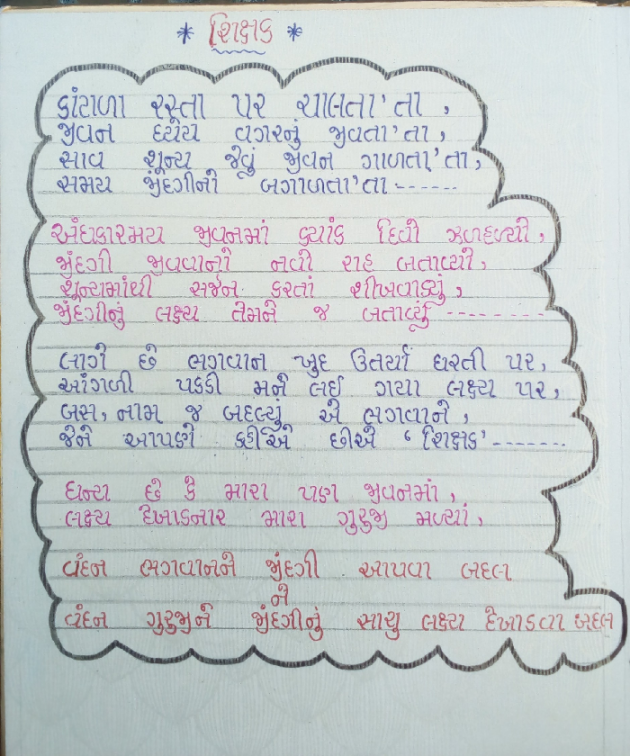 * શિક્ષક *
કાંટાળા રસ્તા પર ચાલતા'તા,
જીવન ધ્યેય વગરનું જીવતા'તા,
સાવ શૂન્ય જેવું જીવન ગાળતા'તા,
સમય જીંદગીનો બગાળતા'તા------
અંધકારમય જીવનમાં ક્યાંક દિવો ઝળહળ્યો,
જીંદગી જીવવાનો નવી રાહ બતાવ્યો,
શૂન્યમાંથી સર્જન કરતાં શીખવાડ્યું,
જીંદગીનું લક્ષ્ય તેમને જ બતાવ્યું--------
લાગે છે ભગવાન ખુદ ઉતર્યા ધરતી પર,
આંગળી પકડી મને લઈ ગયા લક્ષ્ય પર,
બસ, નામ જ બદલ્યું એ ભગવાને,
જેને આપણે કહીએ છીએ 'શિક્ષક'-------
ધન્ય છે કે મારા પણ જીવનમાં,
લક્ષ્ય દેખાડનાર મારા ગુરુજી મળ્યાં,
વંદન ભગવાનને જીંદગી આપવા બદલ
ને
વંદન ગુરુજીને જીંદગીનું સાચુ લક્ષ્ય દેખાડવા બદલ